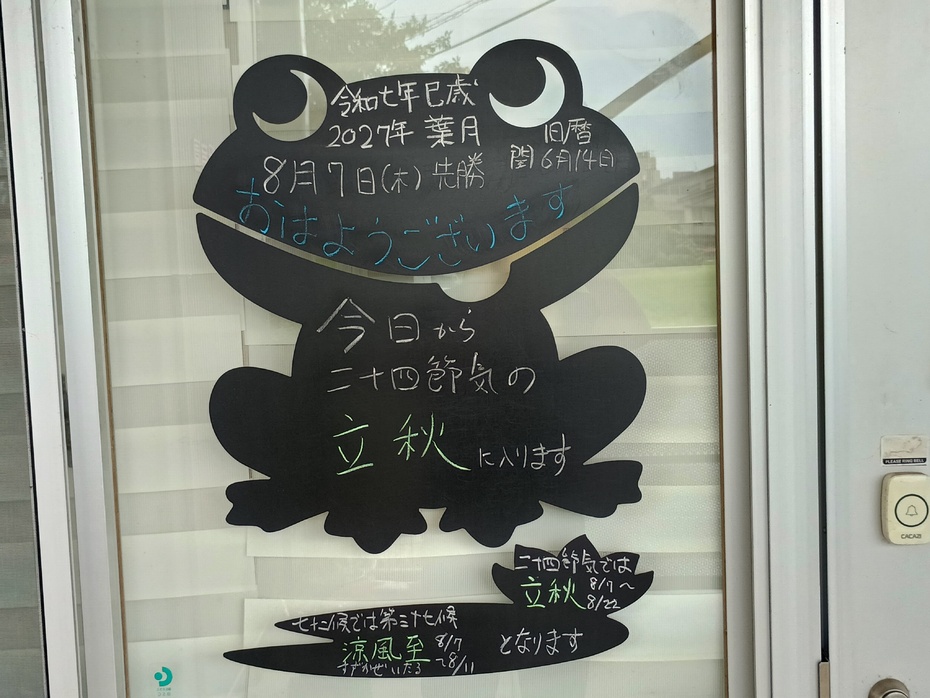 令和七年巳歳
2027年 葉月
旧暦
閏6月14日
8月7日(木) 先勝
おはようございます
今日から
二十四節気の
立秋に入ります
二十四節気では
立秋 8/7〜
8/22
七十二候では第三十七候
涼風至 8/7
すずかぜいたる 〜8/11
となります
PLEASE RING BELL
CACAZI